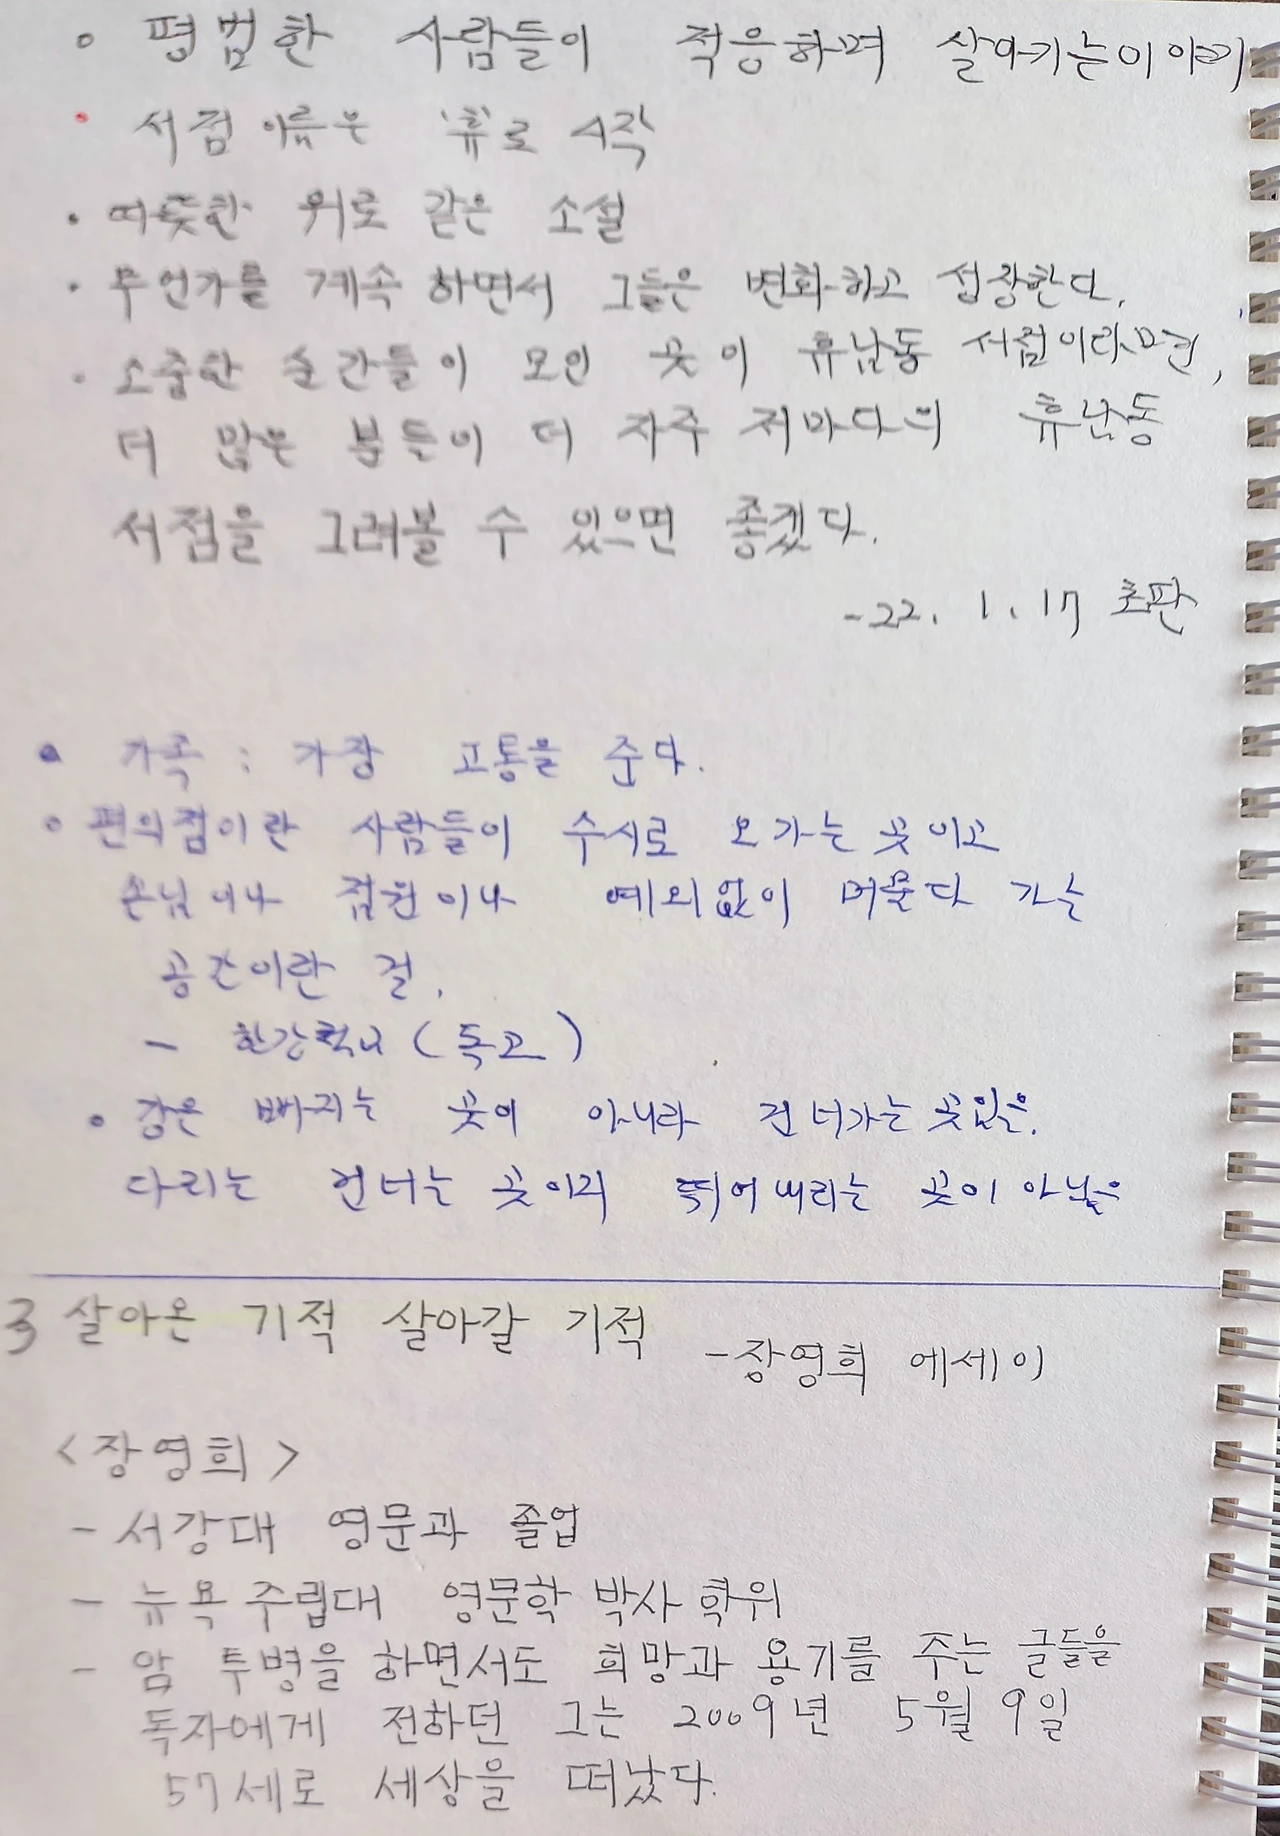 • 평범한 사람들이 적응하며 살아가는 이야기
• 서점 이름은 '휴'로 시작
• 따뜻한 위로 같은 소설
• 무언가를 계속 하면서 그들은 변화하고 성장한다.
• 소중한 순간들이 모인 곳이 휴남동 서점이라면,
더 많은 분들이 더 자주 저마다의 휴남동
서점을 그려볼 수 있으면 좋겠다.
-22. 1. 17 초판
• 가족 : 가장 고통을 준다.
• 편의점이란 사람들이 수시로 오가는 곳이고
손님이나 점원이나 예외없이 머물다 가는
공간이란 걸.
- 한강철교 (독고)
• 강은 빠지는 곳이 아니라 건너가는 곳임을.
다리는 건너는 곳이지 뛰어내리는 곳이 아님을
3 살아온 기적 살아갈 기적 -장영희 에세이
<장영희>
- 서강대 영문과 졸업
- 뉴욕 주립대 영문학 박사 학위
- 암 투병을 하면서도 희망과 용기를 주는 글들을
독자에게 전하던 그는 2009년 5월 9일
57세로 세상을 떠났다.